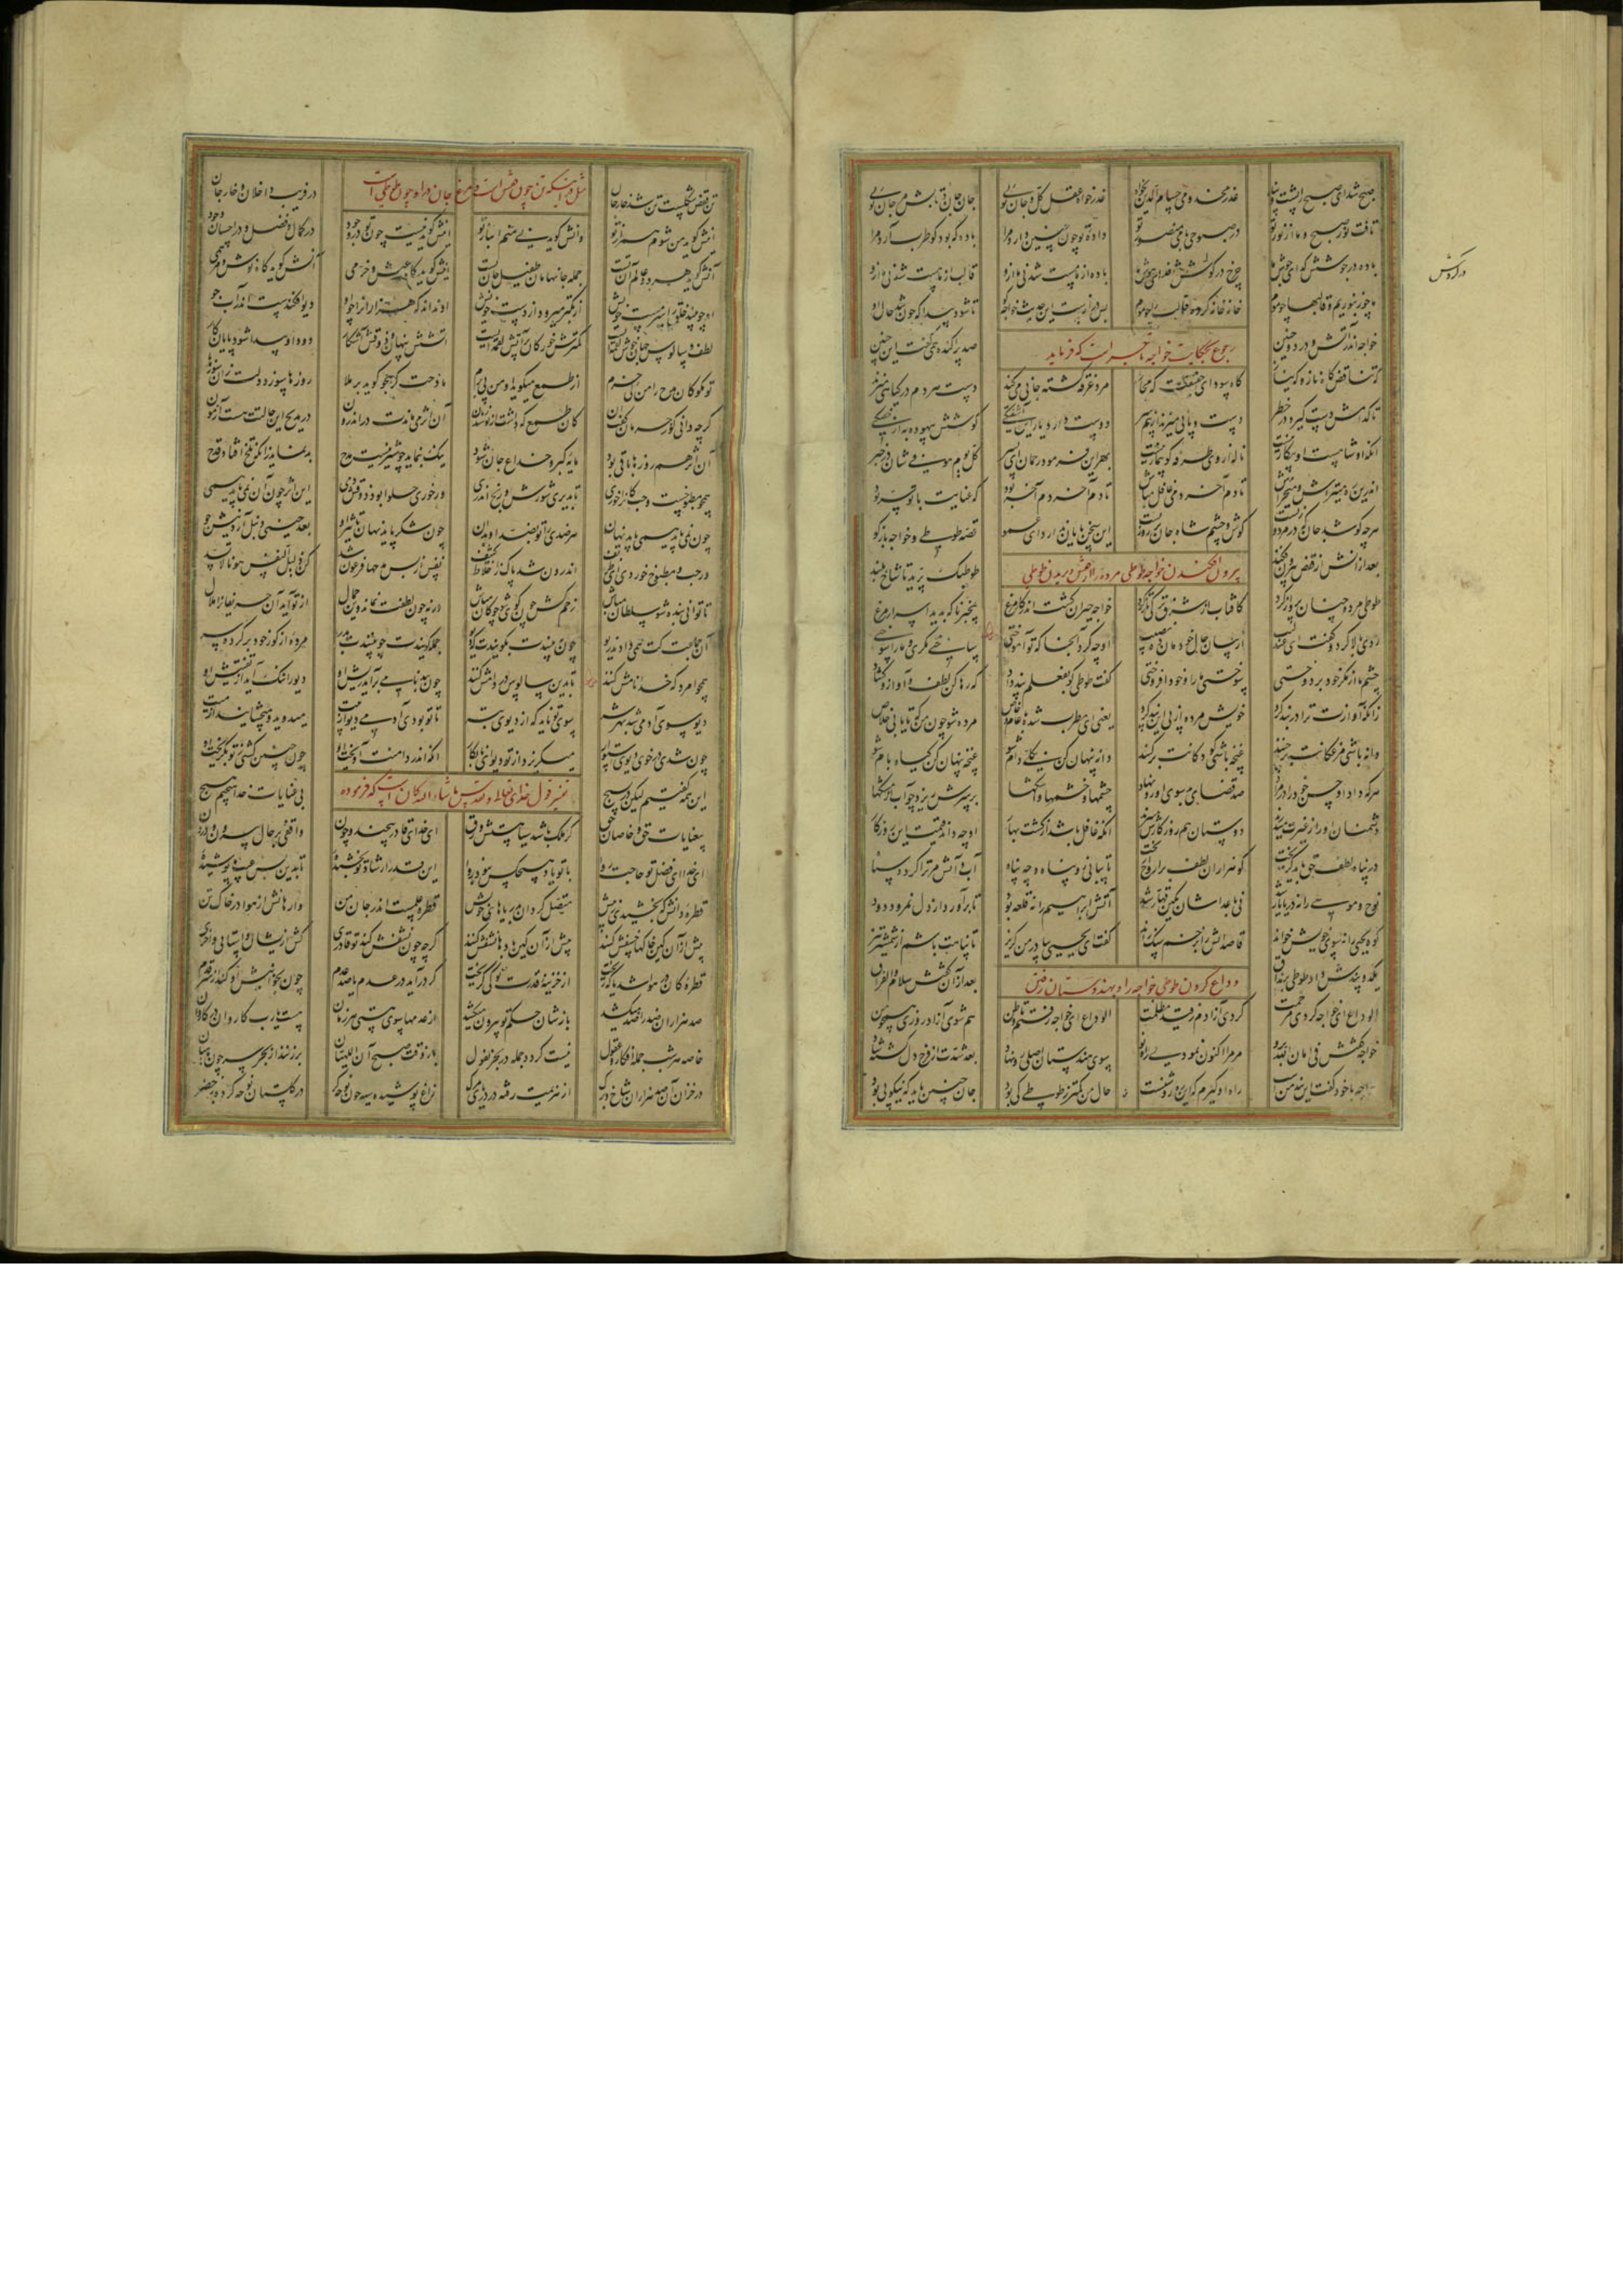 صبح شد ای صبح را پشت و پناه عذر مخدومی حسام الدین بخواه عذرخواه عقل کل و جان توی جان جان تابش مرجان توی
تافت نور صبح و ما از نور تو در صبوحی با می منصور تو داده تو چون چنین دارد مرا باده که بود کو طرب آرد مرا
باده در جوشش گدای جوش ما چرخ در گردش فدای هوش ما باده از ما مست شد نی ما ازو قالب از ما هست شد نی ما ازو
در گردش
ما چو زنبوریم و قالبها چو موم خانه خانه کرده قالب را چو موم بس درازست این حدیث خواجه تا شود پیدا که چون شد حال او
رجوع بحکایت خواجه تاجر است که فرماید
خواجه اندر آتش و درد و حنین صد پراکنده همی گفت این چنین
که تناقض گاه ناز و گه نیاز گاه سودای حقیقت گه مجاز مرد غرقه گشته جانی می کند دست هر دم در گیاهی می زند
تا کدامش دست گیرد در خطر دست و پایی میزند از بیم سر دوست دارد یار این آشفتگی کوشش بیهوده به از خفتگی
انکه او شاهست او بیکار نیست ناله از وی طرفه کو بیمار نیست بهر این فرمود رحمان ای پسر کل یوم هو فی شان در خبر
اندرین ره می تراش و می خراش تا دم آخر دمی غافل مباش تا دم آخر دمی آخر بود که عنایت با تو
هر چه کوشد جان که در مرد و زنست گوش و چشم شاه جان بر روزنست این سخن پایان ندارد ای عمو قصه طوطی و خواجه بازگو
بیرون افکندن خواجه طوطی مرده را از قفس و پریدن طوطی
بعد از انش از قفص بیرون فکند طوطیک پرید تا شاخ بلند
طوطی مرده چنان پرواز کرد کافتاب از شرق ترکی تاز کرد خواجه حیران گشت اندر کار مرغ بیخبر ناگه بدید اسرار مرغ
روی بالا کرد و گفت ای عندلیب از بیان حال خود مان ده نصیب او چه کرد آنجا که تو آموختی ساختی مکری و ما را سوختی
چشم ما از مکر خود بر دوختی سوختی ما را و خود افروختی گفت طوطی کو بفعلم پند داد که رها کن لطف و آواز و گشاد
زانکه آوازت ترا در بند کرد خویش مرده از پی این پند کرد یعنی ای مطرب شده با عام و خاص مرده شو چون من که تا یابی خلاص
دانه باشی مرغکانت بر چنند غنچه باشی کودکانت بر کنند دانه پنهان کن بکلی دام شو غنچه پنهان کن گیاه بام شو
هر که داد او حسن خود را در مزاد صد قضای بد سوی او رو نهاد چشمها و خشمها و اشکها بر سرش ریزد چو آب از مشکها
دشمنان او را ز غیرت می درند دوستان هم روزگارش می برند آنکه غافل باشد از کشت بهار او چه داند قیمت این روزگار
در پناه لطف حق باید گریخت کو هزاران لطف بر ارواح ریخت تا پناهی وچه پناه آب و آتش مر ترا گردد سپاه
نوح و موسی را نه دریا یار شد نی بر اعداشان بکین قهار شد آتش ابراهیم را نه قلعه بود تا برآورد از دل نمرود دود
کوه یحیی را نه سوی خویش خواند قاصدانش را بزخم سنگ راند گفت ای یحیی بیا در من گریز تا پناهت باشم از شمشیر تیز
یک دو پندش داد طوطی بی نفاق بعد از آن گفتش سلام و الفراق
وداع کردن طوطی خواجه را و بهندوستان رفتن
الوداع ای خواجه کردی مرحمت کردی آزادم ز قید مظلمت الوداع ای خواجه رفتم تا وطن هم شوی آزاد روزی همچو من
خواجه گفتش فی امان الله برو مر مرا اکنون نمودی راه نو سوی هندستان اصلی رو نهاد بعد شدت از فرح دل گشته شاد
خواجه با خود گفت این پند منست راه او گیرم که این ره روشنست حال من کمتر ز طوطی کی بود جان چنین باید که نیکوپی بود
تن قفص شکلست تن شد خار جان در فریب داخلان و خارجان
چون قفس است و مرغ جان در او چون طوطی است
اینش گوید من شوم همراز تو وانش گوید نی منم انباز تو اینش گوید نیست چون تو در وجود در کمال و فضل و در احسان و جود
آنش گوید هر دو عالم آن تست جمله جانها مان طفیل جان تست اینش گوید گاه عیش و خرمی آنش گوید گاه نوش و مرهمی
او چو بیند خلق را سرمست خویش از تکبر میرود از دست خویش او نداند که هزاران را چو او دیو افکندست اندر آب جو
لطف و سالوس جهان خوش لقمه ایست کمترش خور کان پر آتش لقمه ایست آتشش پنهان و ذوقش آشکار دود او پیدا شود پایان کار
تو مگو کان مدح را من کی خرم از طمع میگوید و من پی برم مادحت گر هجو گوید بر ملا روزها سوزد دلت زان سوزها
گر چه دانی کو ز حرمان گفت آن کان طمع که داشت از تو شد زیان آن اثر می ماندت در اندرون در مدیح این حالتت هست آزمون
آن اثر هم روزها باقی بود مایه کبر و خداع جان شود لیک ننماید چو شیرینست مدح بد نماید زانکه تلخ افتاد قدح
همچو مطبوخست و حب کانرا خوری تا بدیری شورش و رنج اندری ور خوری حلوا بود ذوقش دمی این اثر چون آن نمی پاید همی
چون نمی پاید همی پاید نهان هر ضدی را تو بضد او بدان چون شکر پاید نهان تاثیر او بعد حینی دنبل آرد نیش جو
ور حب و مطبوخ خوردی ای ظریف اندرون شد پاک ز اخلاط کثیف نفس از بس مدحها فرعون شد کن ذلیل النفس هونا لا تسد
تا توانی بنده شو سلطان مباش زخم کش چون گوی شو چوگان مباش ورنه چون لطفت نماند وین جمال از تو آید آن حریفان را ملال
آن جماعت کت همی دادند ریو چون ببینندت بگویندت که دیو جمله گویندت چو بینندت بدر مرده از گور خود بر کرده سر
همچو امرد که خدا نامش کنند تا بدین سالوس در دامش کنند چون ببدنامی برآید ریش او دیو را ننگ آید از تفتیش او
دیو سوی آدمی شد بهر شر سوی تو ناید که از دیوی بتر تا تو بودی آدمی دیو از پیت میدوید و میچشانید از میت
چون شدی در خوی دیوی استوار میگریزد از تو دیو نابکار آنکه اندر دامنت آویخت او چون چنین گشتی ز تو بگریخت او
این همه گفتیم لیکن در بسیج بی عنایات خدا هیچیم هیچ
تفسیر قول ما شاء الله کان است که فرموده
بی عنایات حق و خاصان حق گر ملک باشد سیاهستش ورق ای خدای قادر بیچند و چون واقفی بر حال بیرون و درون
ای خدا ای فضل تو حاجت روا با تو یاد هیچکس نبود روا این قدر ارشاد تو بخشیده تا بدین بس عیب ما پوشیده
قطره دانش که بخشیدی ز پیش متصل گردان بدریاهای خویش قطره علمست اندر جان من وارهانش از هوا وز خاک تن
پیش از آن کین خاکها خسفش کنند پیش از آن کین بادها نشفش کنند گر چه چون نشفش کند تو قادری کش ازیشان واستانی واخری
قطره کان در هوا شد یا که ریخت از خزینه قدرت تو کی گریخت گر درآید در عدم یا صد عدم چون بخوانیش او کند از سر قدم
صد هزاران ضد ضد را میکشد بازشان حکم تو بیرون میکشد از عدمها سوی هستی هر زمان هست یا رب کاروان در کاروان
خاصه هر شب جمله افکار و عقول نیست گردد جمله در بحر نغول باز وقت صبح آن اللهیان بر زنند از بحر سر چون ماهیان
در خزان آن صد هزاران شاخ و برگ از هزیمت رفته در دریای مرگ زاغ پوشیده سیه چون نوحه گر در گلستان نوحه کرده بر خضر